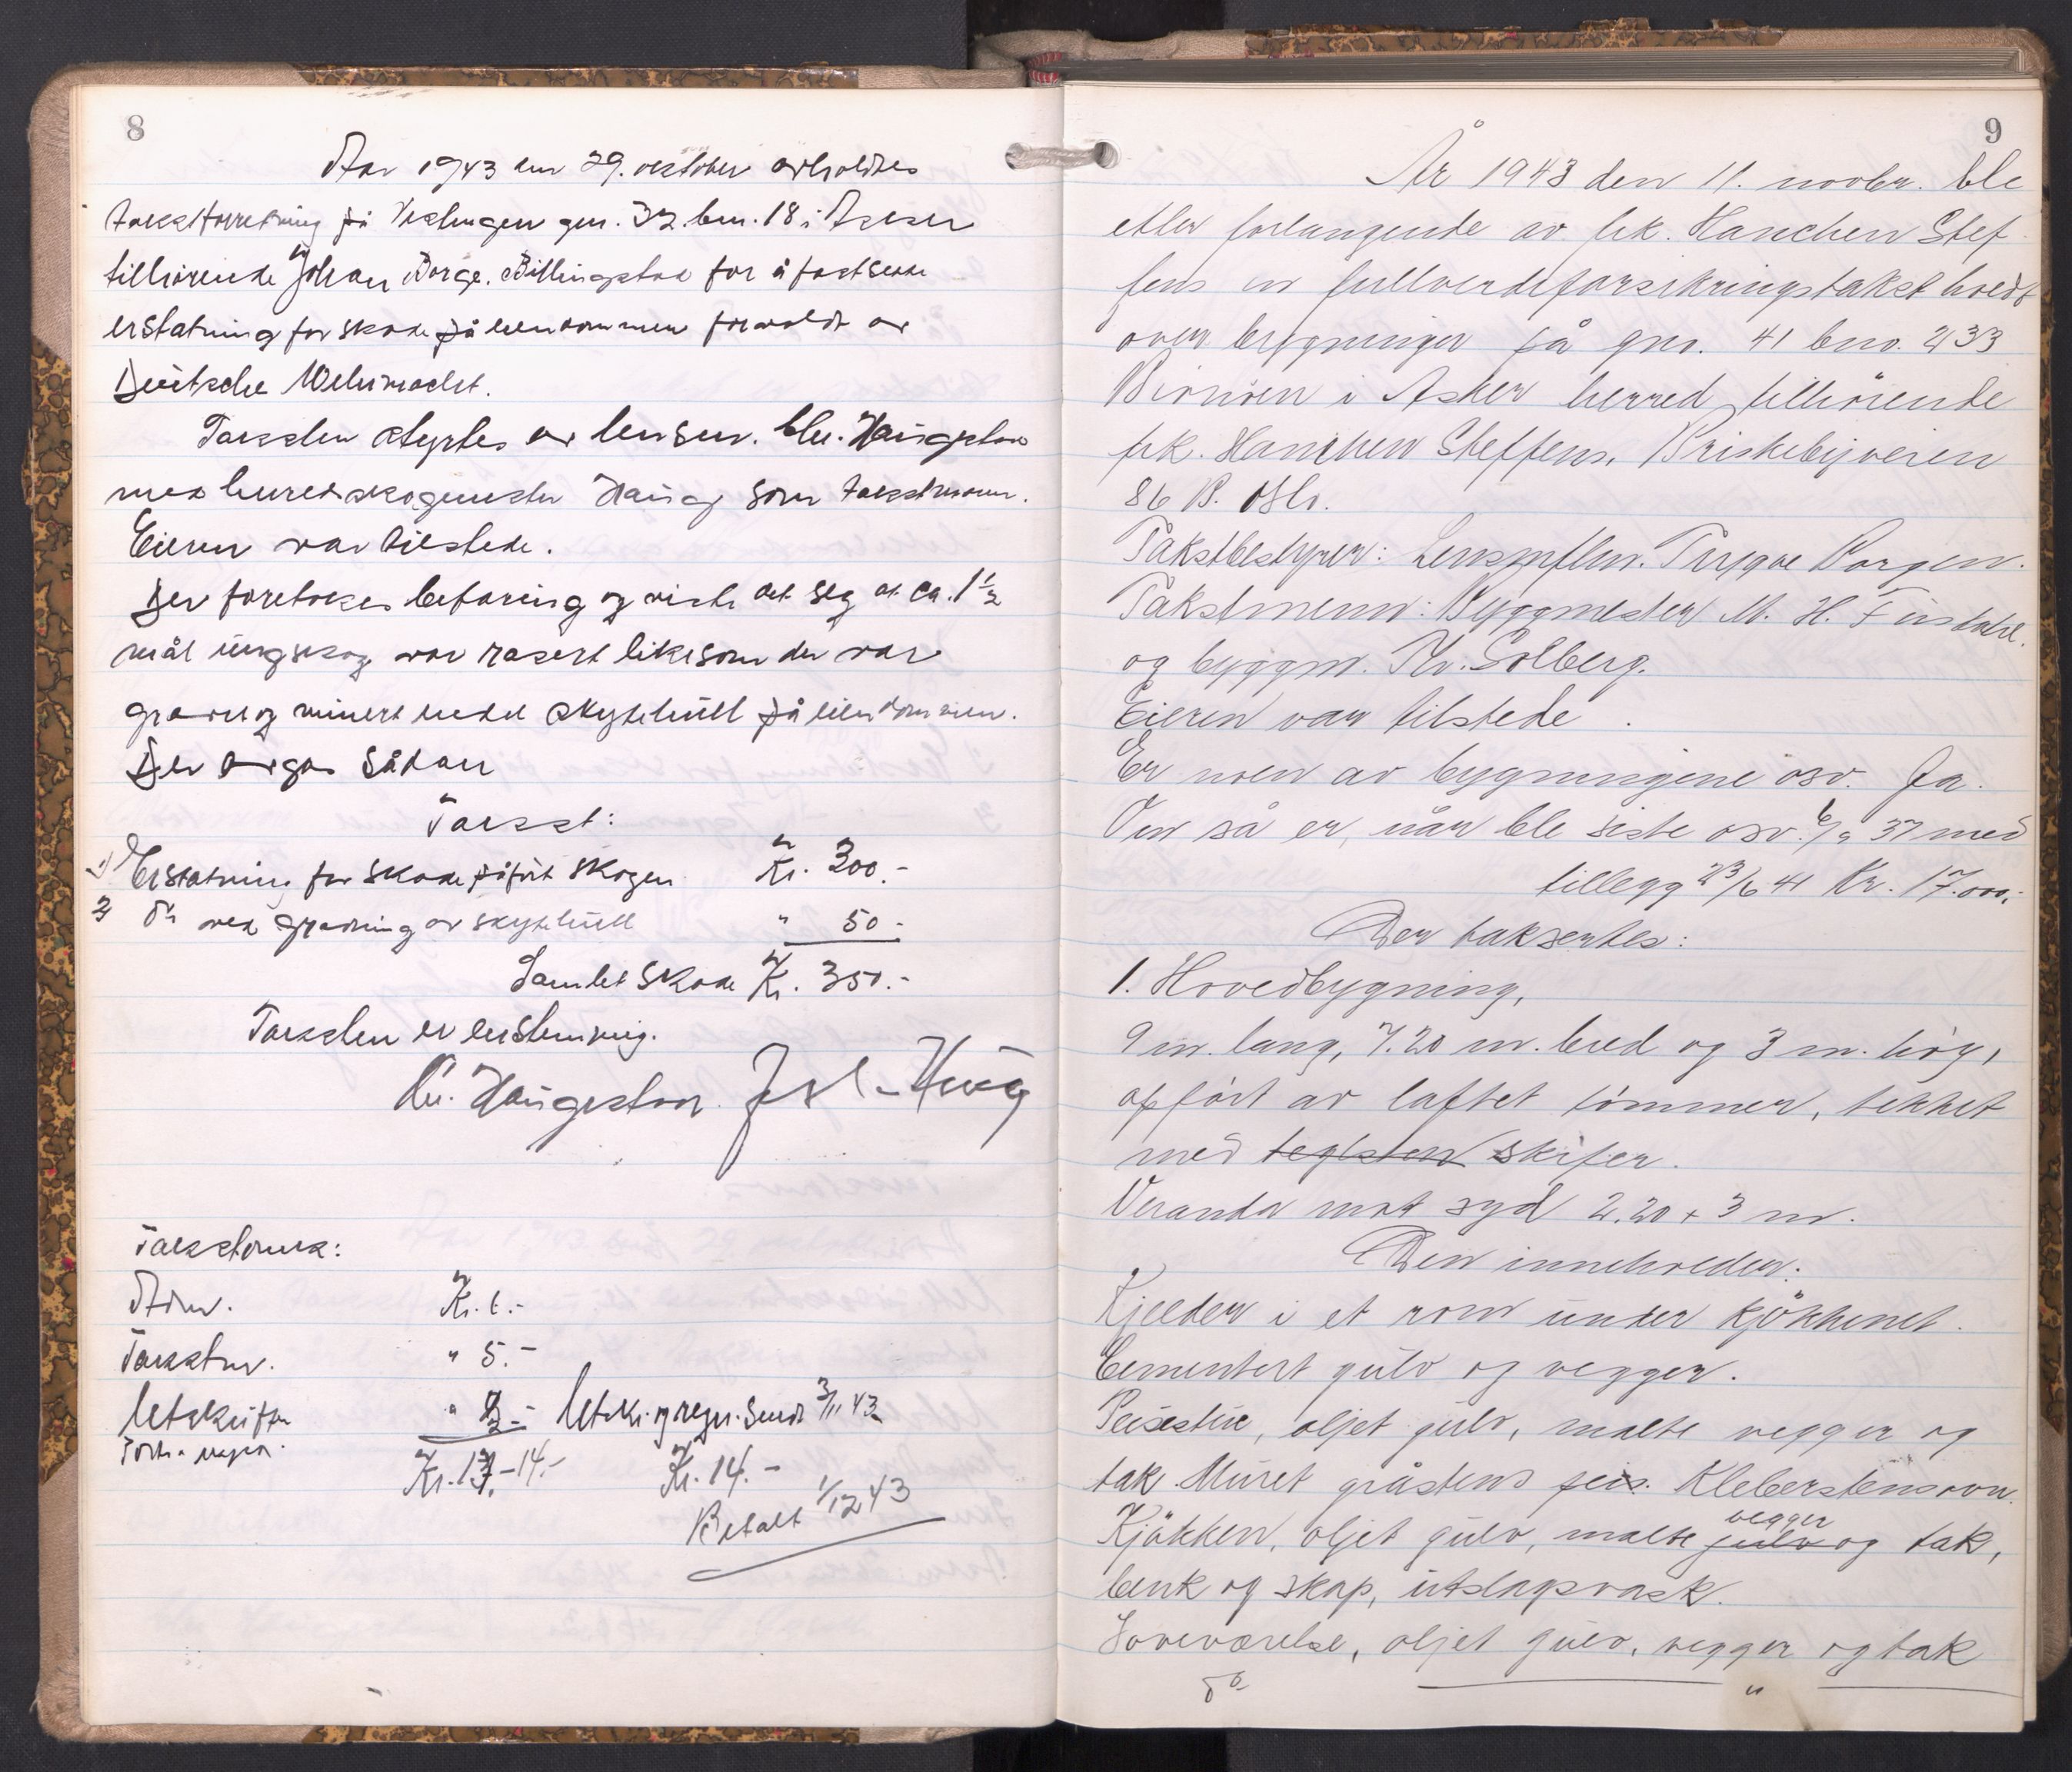 8
Aar 1943 den 29. oktober avholdtes
takstforretning på Veslungen gnr. 32. bnr. 18 i Asker
tilhørende Johan Borge. Billingstad for å fastsette
erstatning for skade på eiendommen forvoldt av
Deutsche Wehrmacht.
Taksten styrtes av lensm. Chr. Haugestad
med herredskogmester Haug som takstmann.
Eieren var tilstede.
Der foretokes befaring og viste det seg at ca. 1 1/2
mål ungskog var rasert likesom der var
gravet og minert hetel skytehull på eiendommen.
Der avgas sådan
Takst:
1) Erstatning for skade påført skogen Kr. 300.-
2 do ved graving av skytehull " 50.-
Samlet skade Kr. 350.-
Taksten er enstemmig.
Chr. Haugestad. Haug
Takstomk:
Adm. Kr. 6.-
Takstm. " 5.-
Utskriften " 2.- Utskr. og regn. sendt 3/11 43
Porto
Kr. 13.- 14.- Kr. 14.-
Betalt 1/12 43
9
År 1943 den 11. novbr. ble
etter forlangende av frk. Hanchen Stef
fens en fullverdiforsikringstakst holdt
over bygninger på gnr. 41 bnr. 233
i Asker herred, tilhørende
frk. Hanchen Steffens, Briskebyveien
86 B. Oslo.
Takstbestyrer: Lensmflm. Trygve Borgen.
Takstmenn: Byggmester M. H. Fusdahl.
og byggm. Chr. Solberg.
Eieren var tilstede.
Er noen av bygningene osv. Ja.
Om så er, når ble siste osv. 6/9 37 med
tillegg 23/6 41 Kr. 17.000,-
Der taksertes:
1. Hovedbygning,
9 m. lang, 7.20 m. bred og 3 m. høy,
oppført av laftet tømmer, tekket
med teglsten skifer.
Veranda mot syd 2.20 x 3 m.
Den inneholder:
Kjelder i et rom under kjøkkenet.
Cementert gulv og vegger.
Peisestue, oljet gulv, malte vegger og
tak. Muret gråstens peis. Kleberstensovn.
Kjøkken, oljet gulv, malte gulv vegger og tak,
benk og skap, utslagsvask.
Soveværelse, oljet gulv, vegger og tak
do "